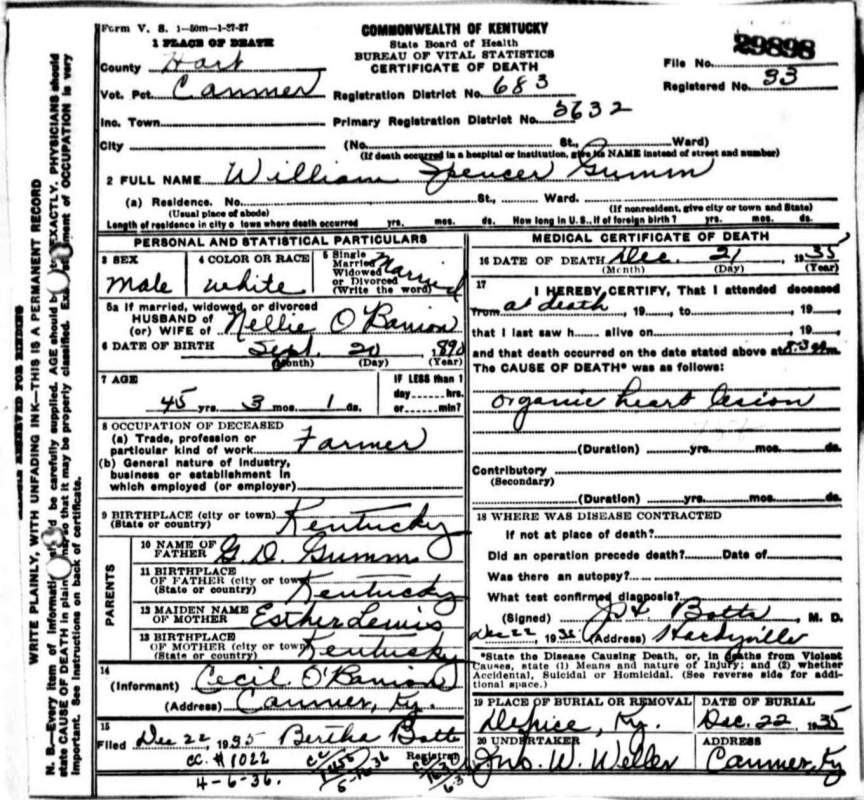 Form V. S. 1-50m-1-27-27
COMMONWEALTH OF KENTUCKY
State Board of Health
BUREAU OF VITAL STATISTICS
CERTIFICATE OF DEATH
File No. 29898
Registered No. 33
1 PLACE OF DEATH
County Hart
Vot. Pct. Canmer Registration District No. 683
Inc. Town Primary Registration District No. 5632
City (No. St., Ward)
(If death occurred in a hospital or institution, give its NAME instead of street and number)
2 FULL NAME William Spencer Gumm
(a) Residence. No. St., Ward.
(Usual place of abode) (If nonresident, give city or town and State)
Length of residence in city o town where death occurred yrs. mos. ds. How long in U. S., if of foreign birth? yrs. mos. ds.
PERSONAL AND STATISTICAL PARTICULARS
3 SEX
Male
4 COLOR OR RACE
White
5 Single
Married
Widowed
or Divorced
(Write the word)
Married
5a If married, widowed, or divorced
HUSBAND of
(or) WIFE of Nellie O'Banion
6 DATE OF BIRTH Sept. 20 1890
(Month) (Day) (Year)
7 AGE
45 yrs. 3 mos. 1 ds.
IF LESS than 1
day hrs.
or min?
8 OCCUPATION OF DECEASED
(a) Trade, profession or
particular kind of work Farmer
(b) General nature of industry,
business or establishment in
which employed (or employer)
9 BIRTHPLACE (city or town)
(State or country) Kentucky
PARENTS
10 NAME OF
FATHER G. D. Gumm
11 BIRTHPLACE
OF FATHER (city or town)
(State or country) Kentucky
12 MAIDEN NAME
OF MOTHER Esther Lewis
13 BIRTHPLACE
OF MOTHER (city or town)
(State or country) Kentucky
14
(Informant) Cecil O'Banion
(Address) Canmer, Ky.
15
Filed Dec 22, 1935 Bertha Botts
Registrar
cc. #1022
4-6-36.
MEDICAL CERTIFICATE OF DEATH
16 DATE OF DEATH Dec. 21 1935
(Month) (Day) (Year)
17
I HEREBY CERTIFY, That I attended deceased
from at death, 19, to, 19
that I last saw h alive on, 19
and that death occurred on the date stated above at
The CAUSE OF DEATH* was as follows:
organic heart lesion
(Duration) yrs. mos. ds.
Contributory
(Secondary)
(Duration) yrs. mos. ds.
18 WHERE WAS DISEASE CONTRACTED
If not at place of death?
Did an operation precede death? Date of
Was there an autopsy?
What test confirmed diagnosis?
(Signed) Botts, M. D.
Dec 22, 1935 (Address) Hardyville
*State the Disease Causing Death, or, in deaths from Violent
Causes, state (1) Means and nature of Injury; and (2) whether
Accidental, Suicidal or Homicidal. (See reverse side for addi-
tional space.)
19 PLACE OF BURIAL OR REMOVAL
Ky.
DATE OF BURIAL
Dec. 22 1935
20 UNDERTAKER
Jno. W. Weller
ADDRESS
Canmer, Ky
WRITE PLAINLY, WITH UNFADING INK—THIS IS A PERMANENT RECORD